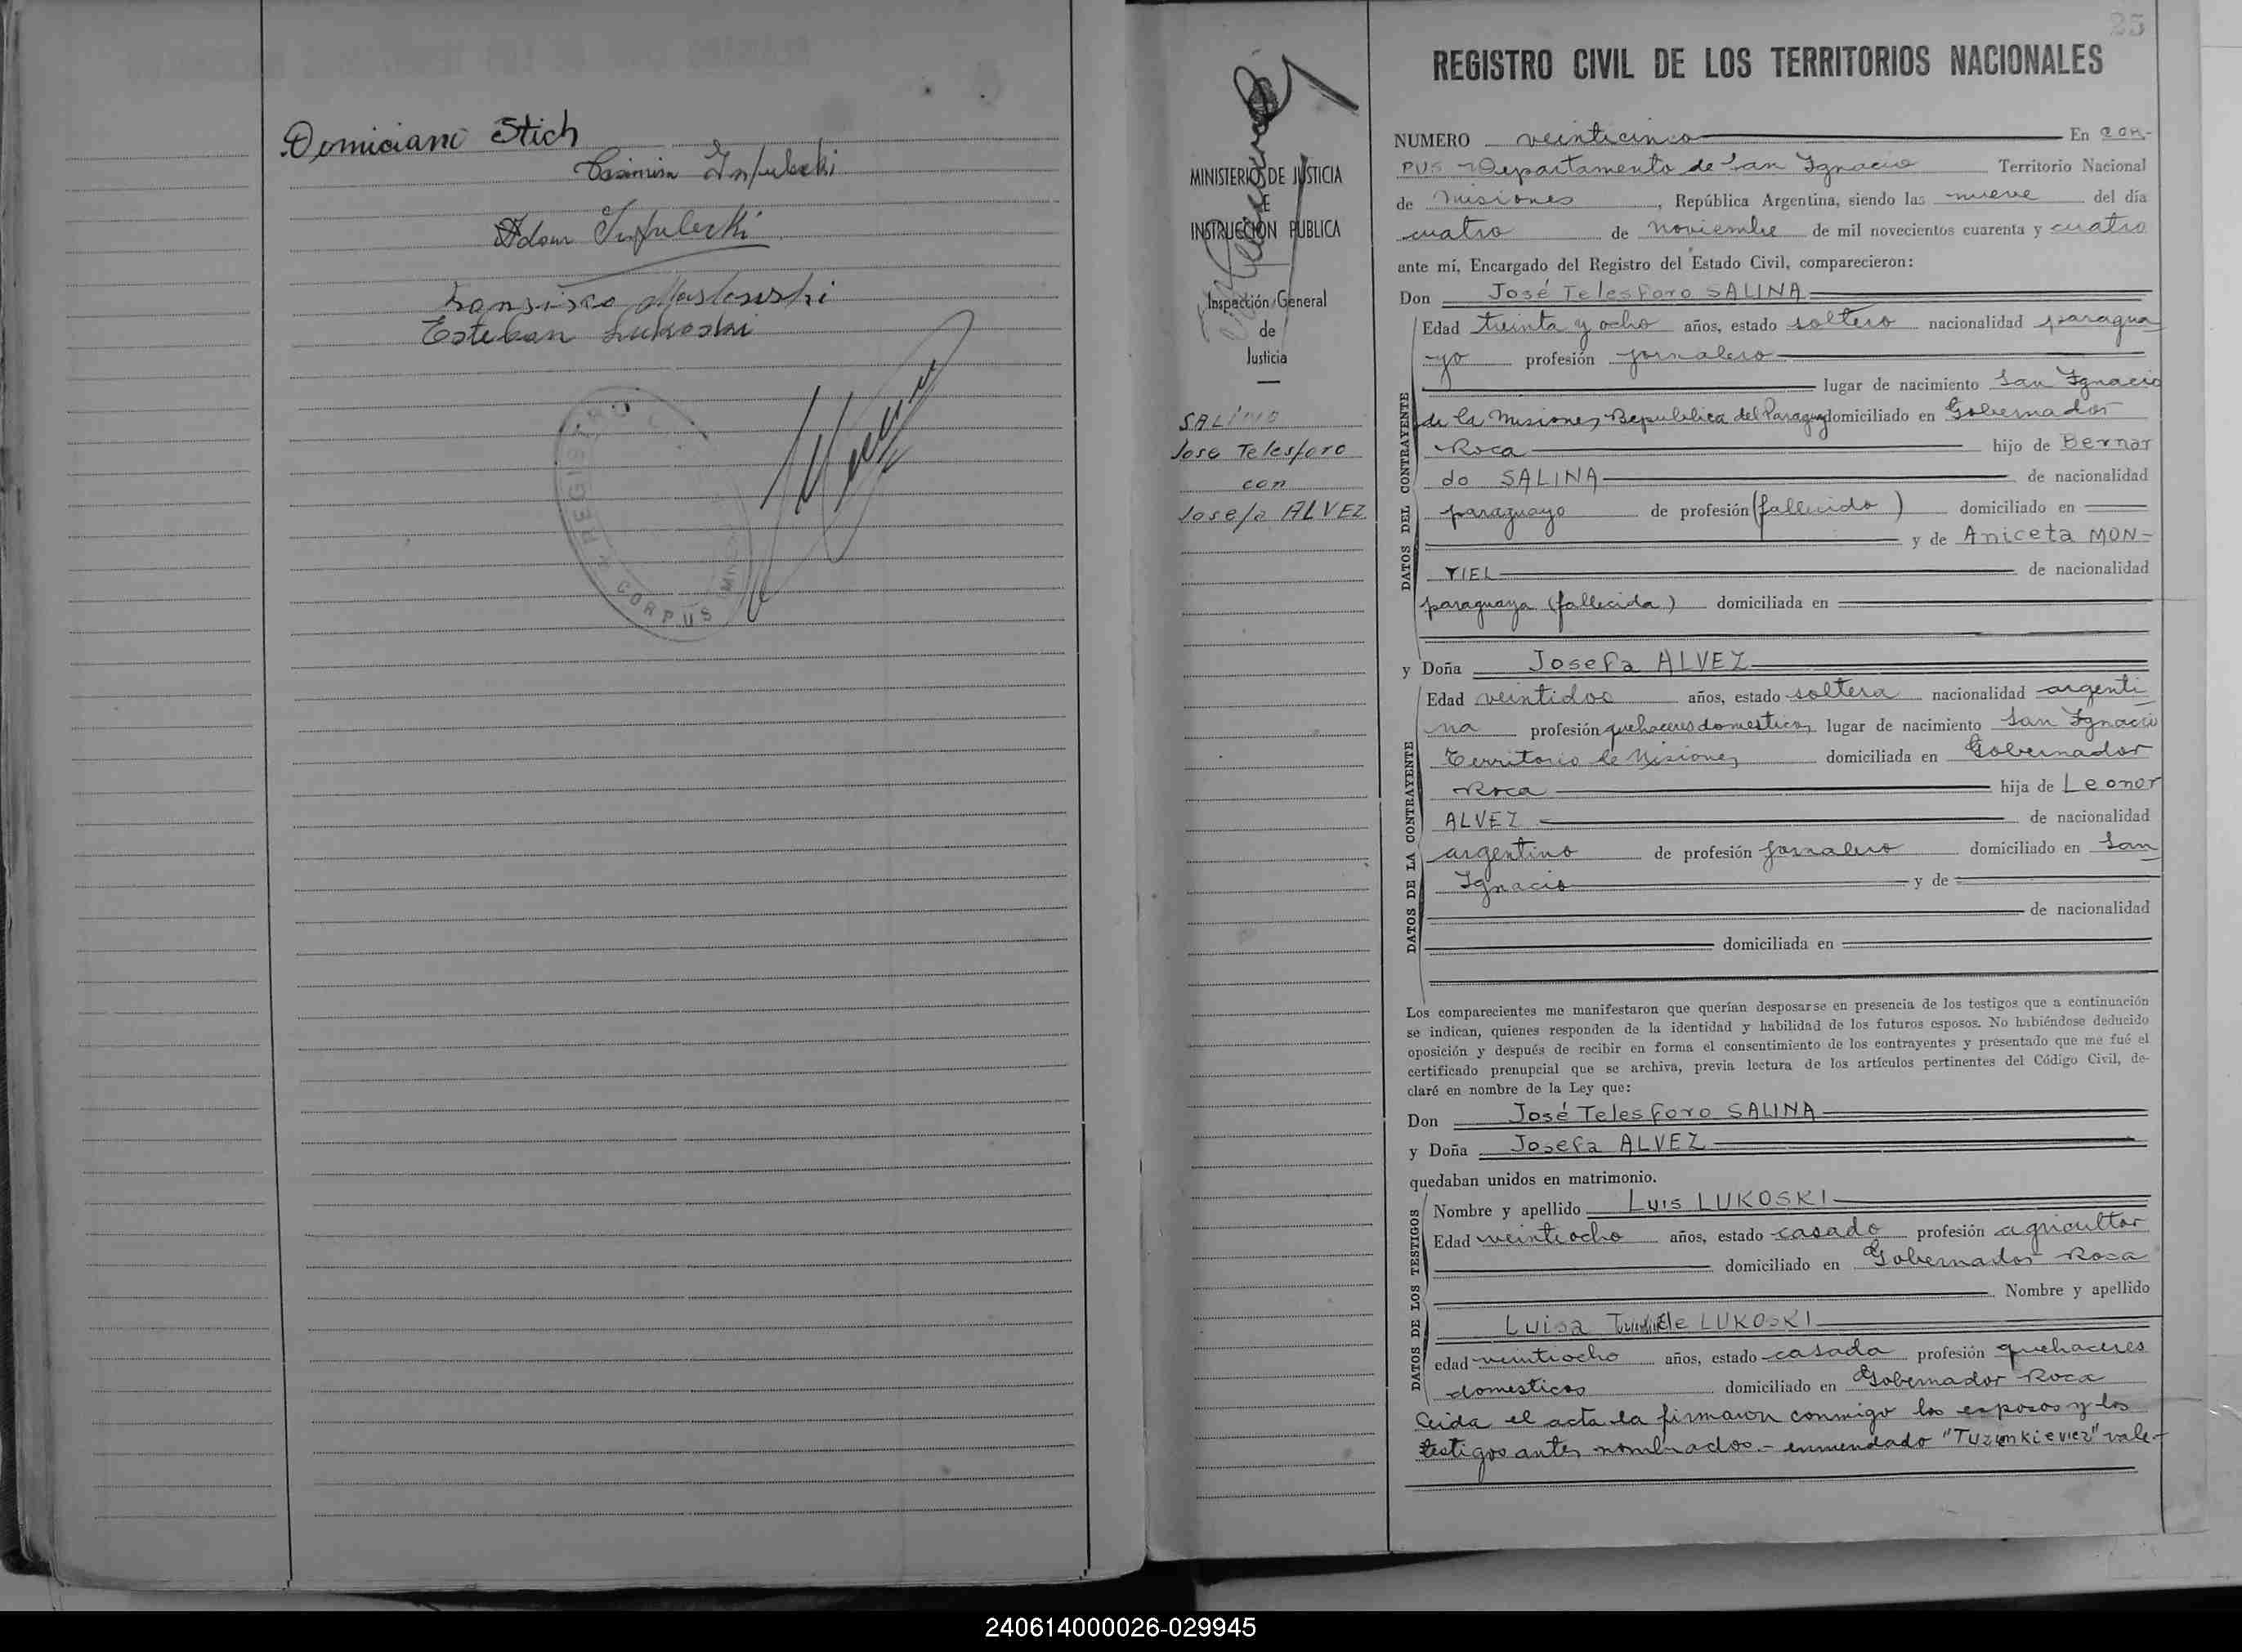 Domiciano Stich
Adam
Esteban Lukoski
CORPUS
25
REGISTRO CIVIL DE LOS TERRITORIOS NACIONALES
MINISTERIO DE JUSTICIA
E
INSTRUCCION PUBLICA
Inspección General
de
Justicia
SALINA
Jose Telesforo
con
Josefa ALVEZ
NUMERO veinticinco En COR-
PUS Departamento de San Ignacio Territorio Nacional
de Misiones, República Argentina, siendo las nueve del día
cuatro de noviembre de mil novecientos cuarenta y cuatro
ante mí, Encargado del Registro del Estado Civil, comparecieron:
Don José Telesforo SALINA
DATOS DEL CONTRAYENTE
Edad treinta y ocho años, estado soltero nacionalidad paragua
yo profesión jornalero
lugar de nacimiento San Ignacio
de la Misiones, Republica del Paraguay domiciliado en Gobernador
Roca hijo de Bernar
do SALINA de nacionalidad
paraguayo de profesión (fallecido) domiciliado en
y de Aniceta MON-
TIEL de nacionalidad
paraguaya (fallecida) domiciliada en
y Doña Josefa ALVEZ
DATOS DE LA CONTRAYENTE
Edad veintidos años, estado soltera nacionalidad argenti
na profesión quehaceres domesticos lugar de nacimiento San Ignacio
Territorio de Misiones domiciliada en Gobernador
Roca hija de Leonor
ALVEZ de nacionalidad
argentino de profesión jornalero domiciliado en San
Ignacio y de
de nacionalidad
domiciliada en
Los comparecientes me manifestaron que querían desposarse en presencia de los testigos que a continuación
se indican, quienes responden de la identidad y habilidad de los futuros esposos. No habiéndose deducido
oposición y después de recibir en forma el consentimiento de los contrayentes y presentado que me fué el
certificado prenupcial que se archiva, previa lectura de los artículos pertinentes del Código Civil, de-
claré en nombre de la Ley que:
Don José Telesforo SALINA
y Doña Josefa ALVEZ
quedaban unidos en matrimonio.
DATOS DE LOS TESTIGOS
Nombre y apellido Luis LUKOSKI
Edad veintiocho años, estado casado profesión agricultor
domiciliado en Gobernador Roca
Nombre y apellido
Luisa de LUKOSKI
edad veintiocho años, estado casada profesión quehaceres
domesticos domiciliado en Gobernador Roca
Leida el acta la firmaron conmigo los esposos y los
testigos antes nombrados.- enmendado "Tuzinkieviez" vale-
240614000026-029945